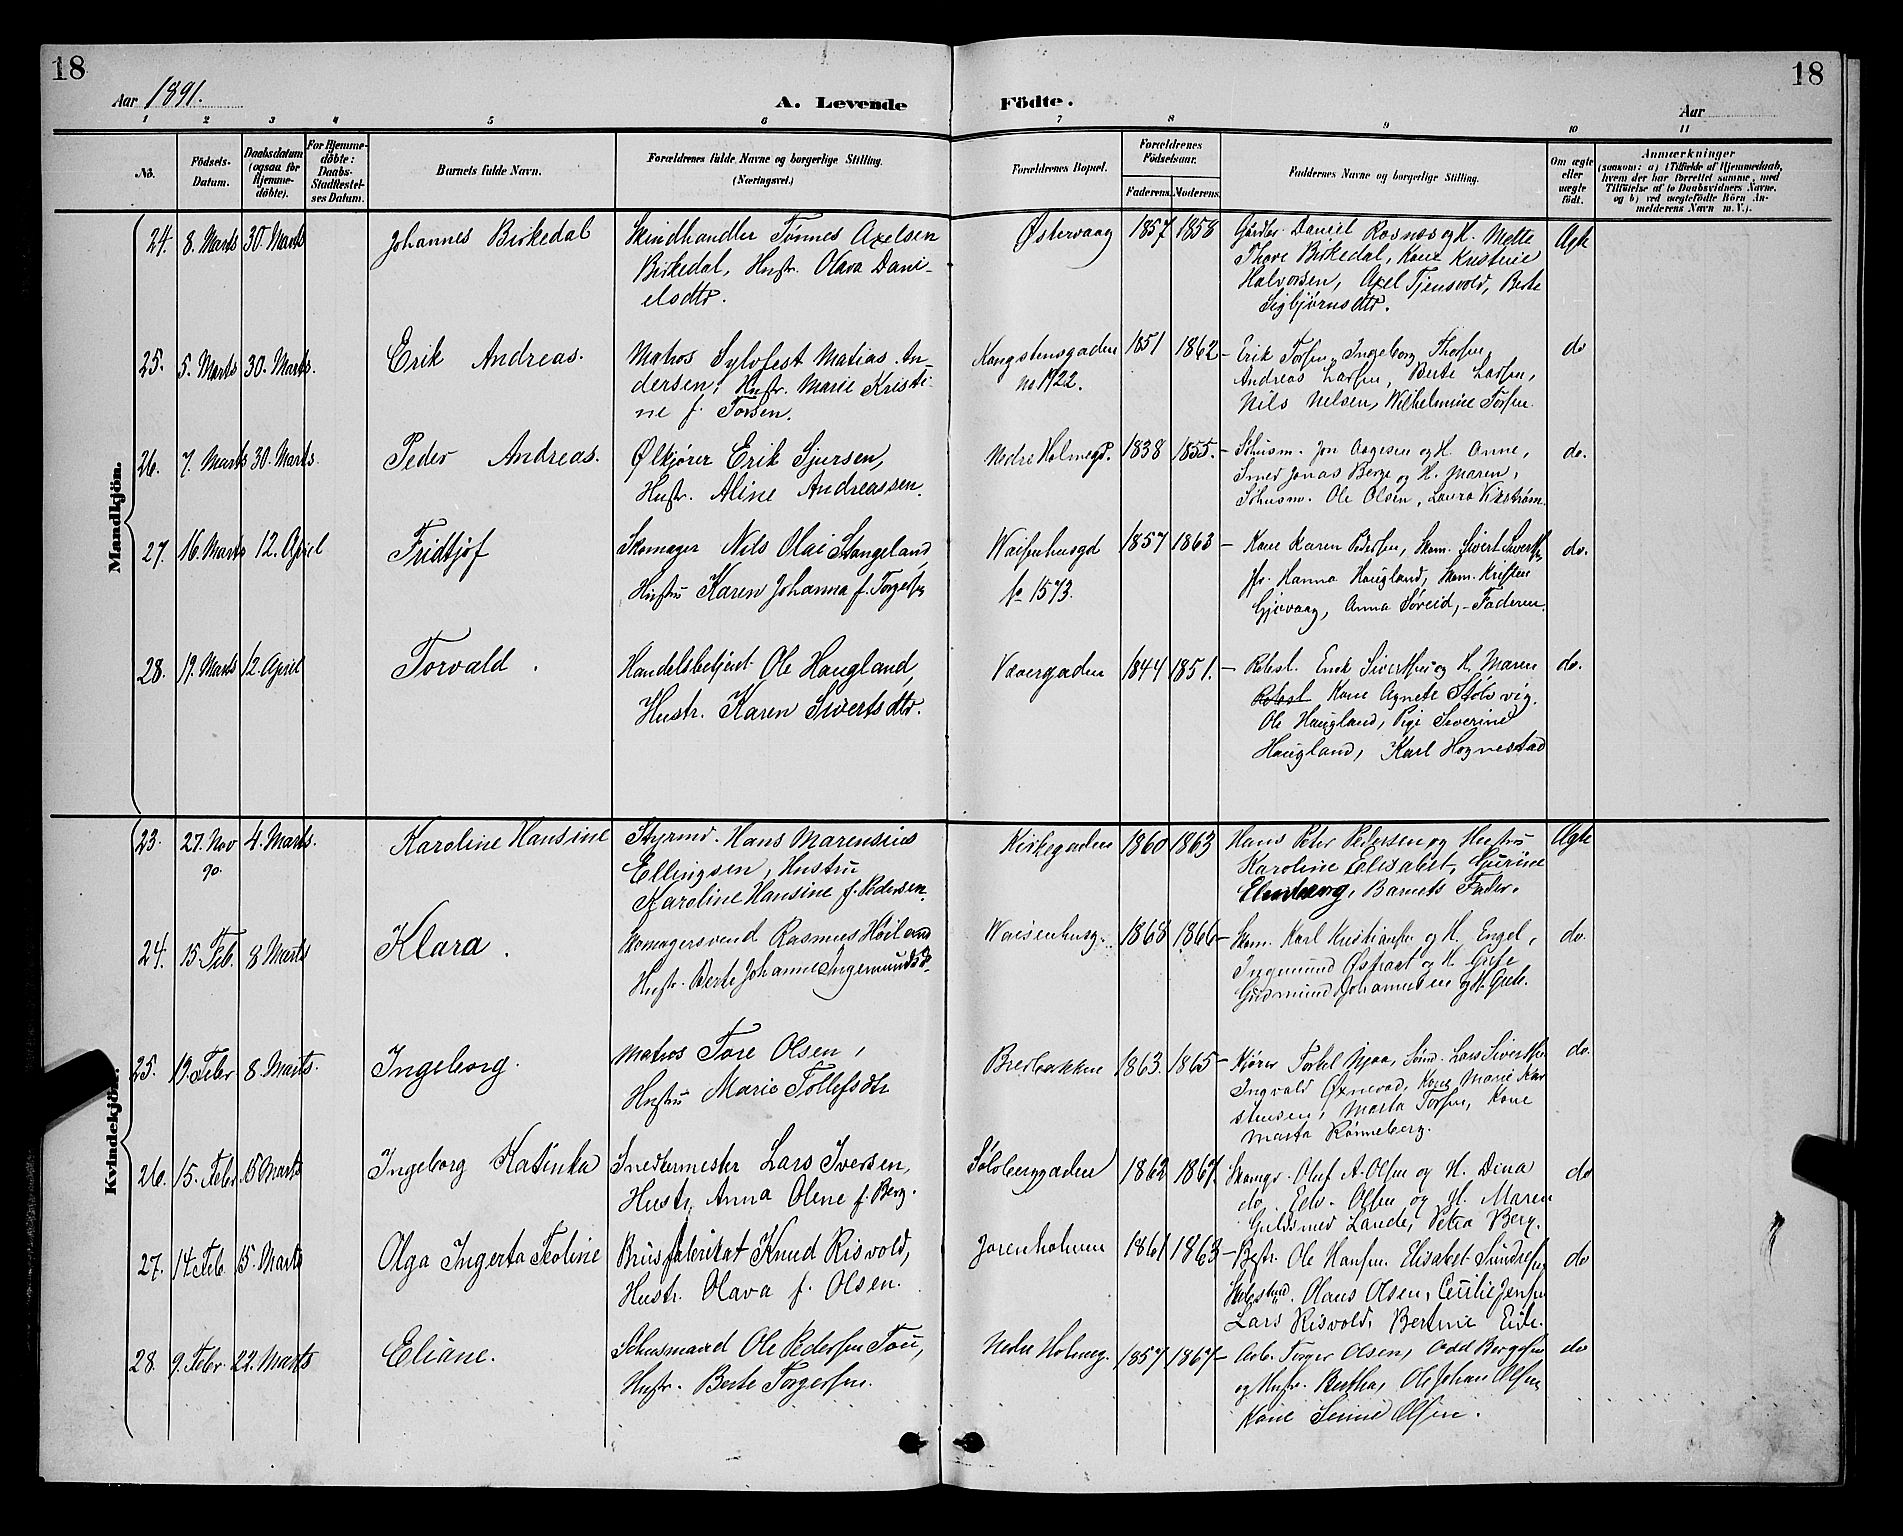 18
18
Aar 1891.
A. Levende Födte.
Aar
1 2 3 4 5 6 7 8 9 10 11
No.
Födsels-Datum.
Daabsdatum (ogsaa for Hjemme-döbte).
For Hjemme-döbte: Daabs-Stadfæstel-ses Datum.
Barnets fulde Navn.
Forældrenes fulde Navne og borgerlige Stilling.
(Næringsvei.)
Forældrenes Bopæl.
Forældrenes Födselsaar.
Faderens. Moderens.
Faddernes Navne og borgerlige Stilling.
Om ægte eller uægte födt.
Anmærkninger
(saasom: a) i Tilfælde af Hjemmedaab, hvem der har forrettet samme, med Tilföielse af to Daabsvidners Navne, og b) ved uægtefödte Börn Anmelderens Navn m. V.).
Mandkjön.
24. 8. Marts 30. Marts Johannes Birkedal
Skindhandler Tønnes Axelsen
Birkedal, Hustr. Olava Dani-
elsdtr.
Østervaag 1857 1858
Gårdbr. Daniel Rosnes og H. Mette
Thore Birkedal, Kone Kristine
Halvorsen, Axel Tjensvold, Berte
Sigbjørnsdtr.
Ægte
25. 5. Marts 30. Marts. Erik Andreas.
Matros Sylvfest Matias An-
dersen, Hustr. Marie Kristi-
ne f. Torsen.
Kongstensgaden
no 1922.
1851 1862
Erik Torsen, Ingeborg Thorsen,
Andreas Larsen, Berte Larsen,
Nils Nelsen, Wilhelmine Torsen.
do
26. 7. Marts 30. Marts. Peder Andreas.
Ølkjører Erik Sjursen,
Hustr. Aline Andreassen.
Nedre Holmegd. 1838 1855.
Schusm. Jon Aagesen og H. Anne,
Smed Jonas Berge og H. Maren,
Schusm. Ole Olsen, Laura
do.
27. 16. Marts 12. April Fridtjof
Skomager Nils Olai Stangeland,
Hustru Karen Johanna f. Torgersen
Waisenhusgd
No 1573.
1857 1863
Kone Karen Pedersen, Skom. Sivert Sivertsen,
Hanna Haugland, Skom. Kristen
Gjevaag, Anna Søreid, Faderen.
do.
28. 19. Marts 12. April Torvald.
Handelsbetjent Ole Haugland,
Hustr. Karen Sivertsdtr.
Vævergaden 1844 1851.
Enok Sivertsen og H. Maren
Kone Agnete Stølsvig,
Ole Haugland, Pige Severine
Haugland, Karl Hognestad
do.
Kvindekjön.
23. 27. Nov 90. 4. Marts. Karoline Hansine
Styrmd. Hans Marensius
Ellingsen, Hustru
Karoline Hansine f. Pedersen.
Kirkegaden 1860 1863
Hans Peter Pedersen og Hustru
Karoline Elisabet, Gurine
Barnets Fader.
Ægte
24. 15. Feb. 8 Marts Klara.
Skomagersvend Rasmus Høiland
Hustr. Berte Johanne Ingemundsd.
Waisenhusg. 1868 1866
Skom. Karl Kristiansen og H. Engel,
Ingemund Østraat og H. Grete
Gudmund Johannesen og H. Grete.
do.
25. 19. Febr 8. Marts. Ingeborg.
Matros Tore Olsen,
Hustru Marie Tollefsdtr
Bredbakken 1863. 1865
Kjører Torkel Njaa, Lars Sivertsen
Ingvald Øxnevad, Kone Marie Kar
stensen, Marta Torsen, Kone
Marta Rönneberg.
do.
26. 15. Febr. 15 Marts Ingeborg Katinka
Snedkermester Lars Iversen,
Hustr. Anna Olene f. Berg.
Sølvberggaden 1862 1867.
Skomgr. Oluf A. Olsen og H. Dina
do. Edv. Olsen og H. Maren
Guldsmed Lande, Petra Berg.
do
27. 14. Feb. 15. Marts Olga Ingerta Teoline
Brusfabrikat Knud Risvold,
Hustr. Olava f. Olsen.
Jorenholmen 1861 1863
Bestr. Ole Hansen. Elisabet
Olaus Olsen, Cecilie Jensen
Lars Risvold, Bertine Eide.
do
28. 9. Febr. 22. Marts Eliane.
Schusmand Ole Pedersen Tou,
Hustr. Berte Torgersen.
Nedre Holmeg. 1857 1867
Arb. Torger Olsen, Odd
og Hustr. Bertha, Ole Johan Olsen,
Kone Senne Olsen.
do